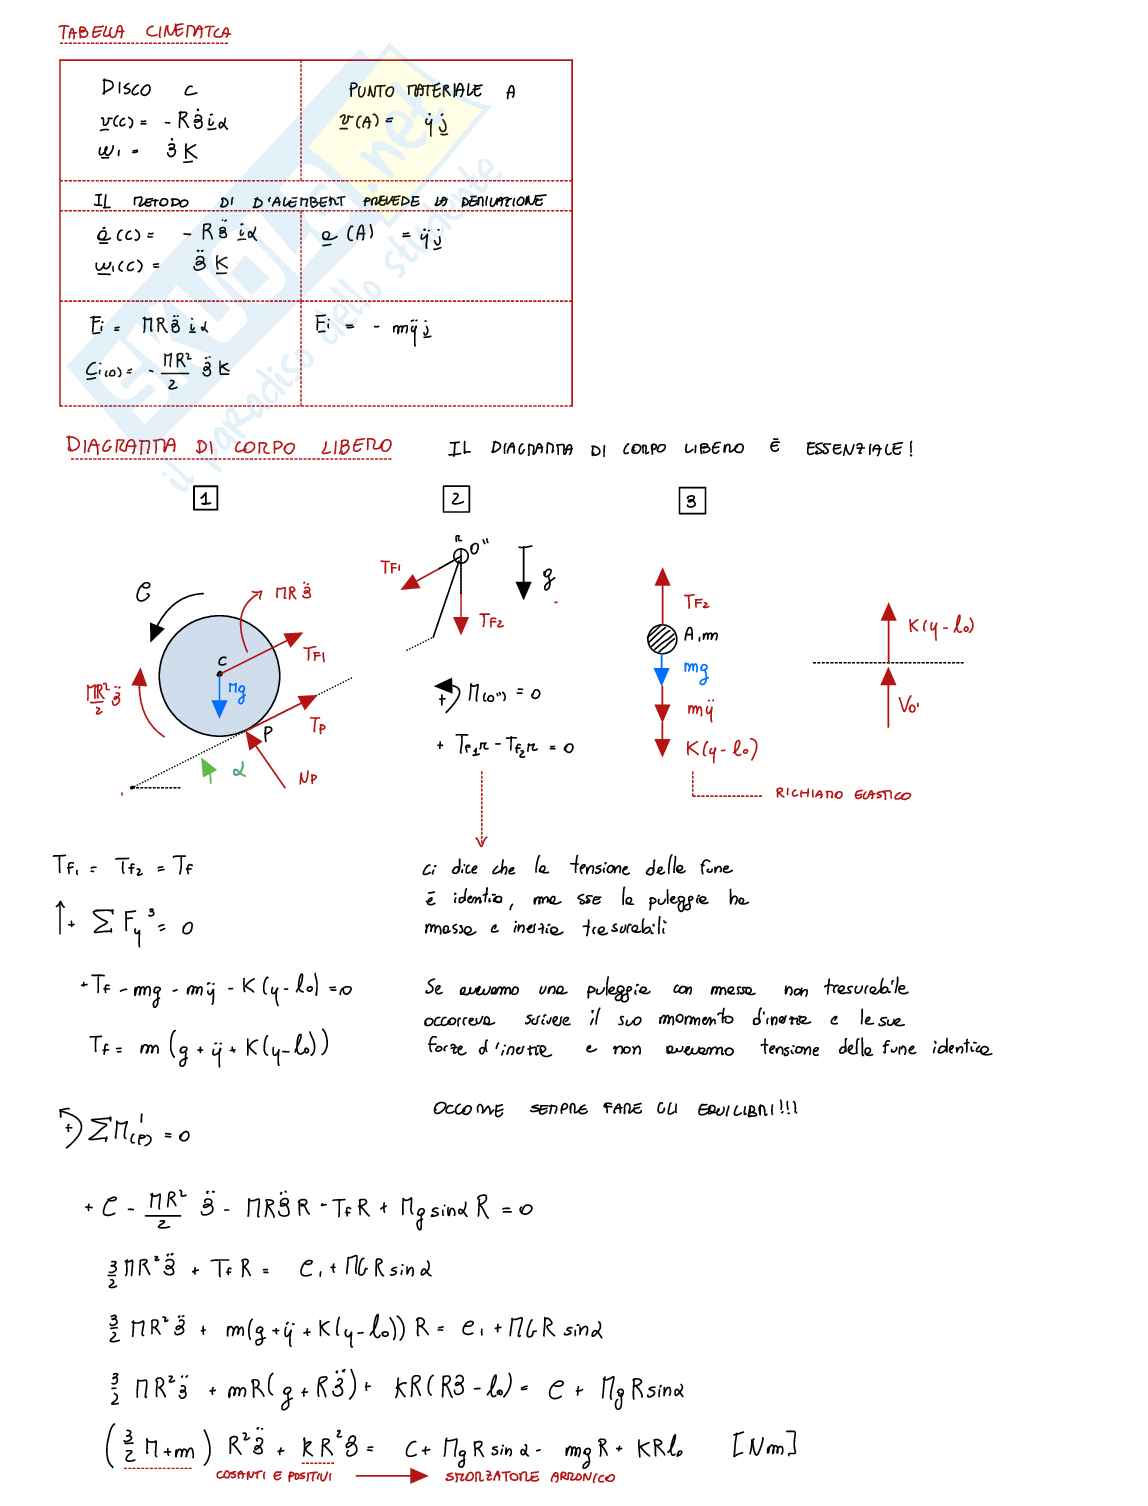 TABELLA CINEMATCA
DISCO C
PUNTO MATERIALE A
v(c) = - Rϑ̇ iα
v(A) = ẏ j
ω₁ = ϑ̇ K
IL METODO DI D'ALEMBERT PREVEDE LA DERIVAZIONE
a(c) = - Rϑ̈ iα
a(A) = ÿ j
ω̇₁(c) = ϑ̈ K
Fi = MRϑ̈ iα
Fi = - mÿ j
Ci(o) = - MR²/2 ϑ̈ K
SKUOLA.net
il paradiso dello studente
DIAGRAMMA DI CORPO LIBERO
IL DIAGRAMMA DI CORPO LIBERO È ESSENZIALE!
1
2
3
C
MRϑ̈
C
TF1
Mg
MR²/2 ϑ̈
TP
P
α
NP
r
O''
TF1
g
TF2
+ M(o'') = 0
+ TF1r - TF2r = 0
TF2
A,m
mg
mÿ
K(y-l₀)
RICHIAMO ELASTICO
K(y-l₀)
Vo'
TF1 = TF2 = TF
ci dice che la tensione della fune
è identica, ma sse la puleggia ha
massa e inerzia trascurabili
+ ΣFy³ = 0
+TF - mg - mÿ - K(y-l₀) = 0
TF = m(g+ÿ+K(y-l₀))
Se avevamo una puleggia con massa non trascurabile
occorreva scrivere il suo mormento d'inerzia e le sue
forze d'inerzia e non avevamo tensione della fune identica
OCCORRE SEMPRE FARE GLI EQUILIBRI!!!
+ ΣM(P)¹ = 0
+ C - MR²/2 ϑ̈ - MRϑ̈R - TFR + Mg sinα R = 0
3/2 MR²ϑ̈ + TFR = C₁ + MGR sinα
3/2 MR²ϑ̈ + m(g+ÿ+K(y-l₀))R = C₁ + MGR sinα
3/2 MR²ϑ̈ + mR(g+Rϑ̈) + KR(Rϑ-l₀) = C + MgRsinα
(3/2 M+m) R²ϑ̈ + KR²ϑ = C + MgR sinα - mgR + KRl₀ [Nm]
COSANTI E POSITIVI → SMORZATORE ARMONICO